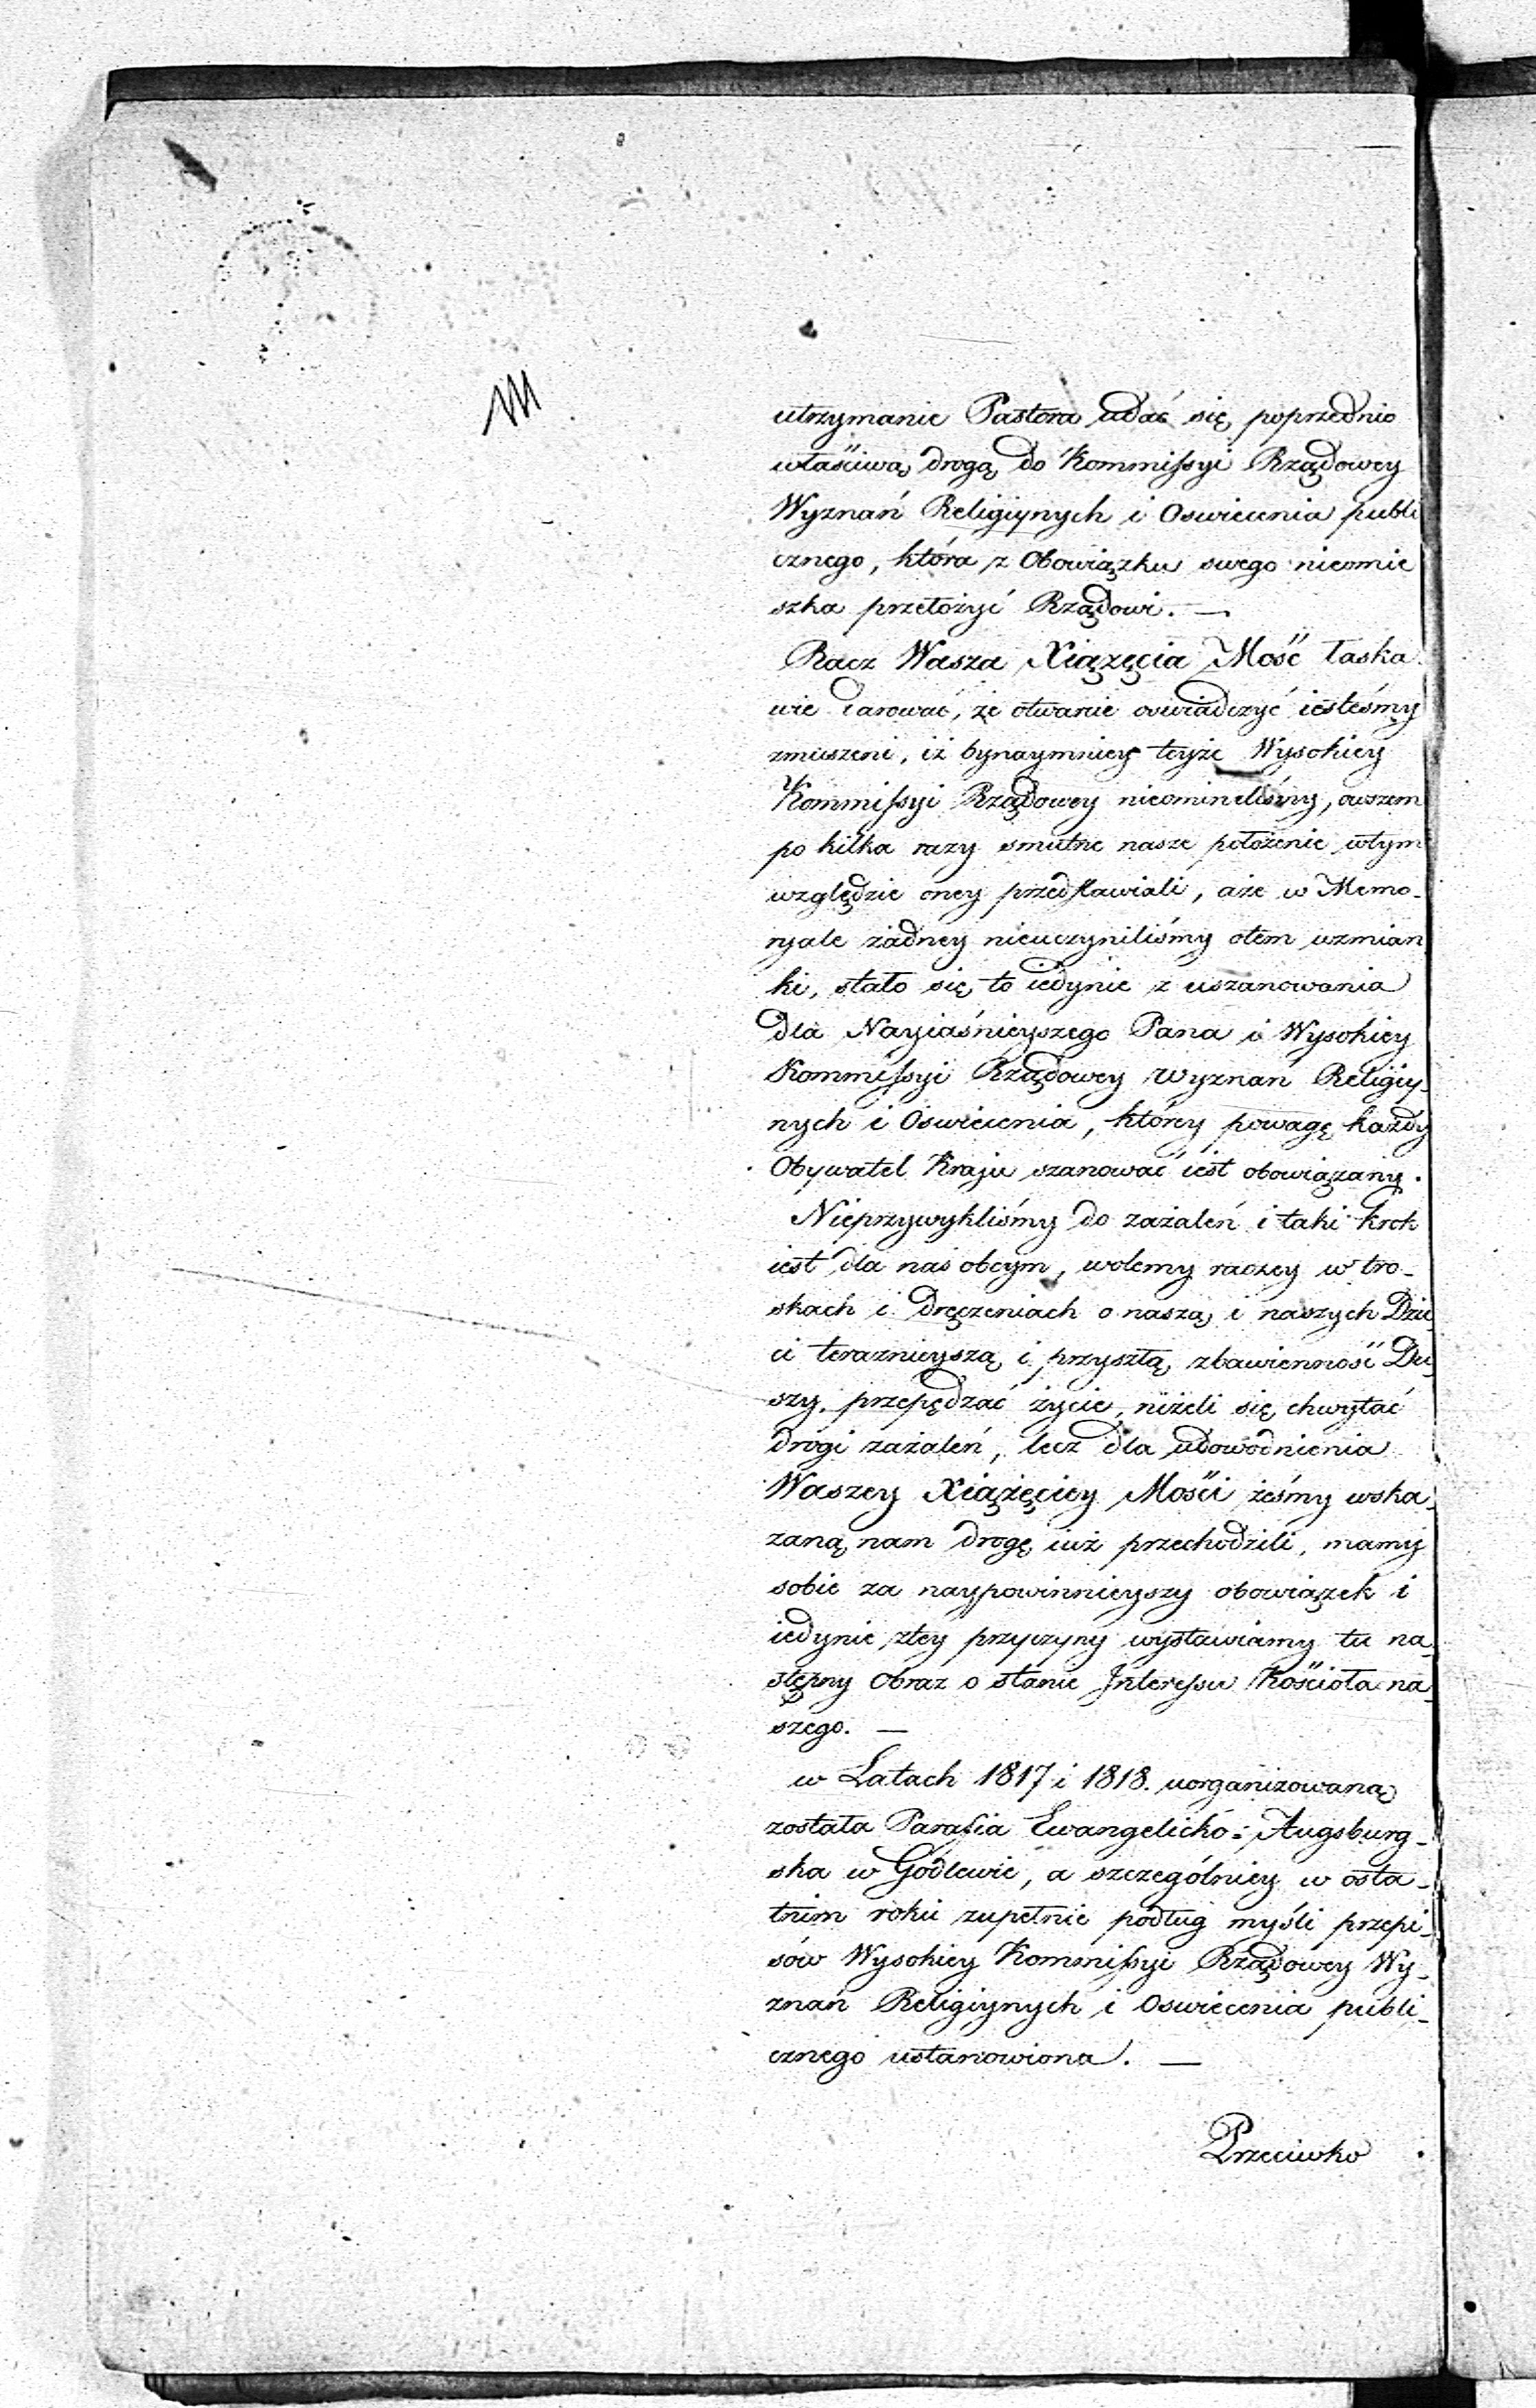 utrzymanie Pastora udać się poprzednio
właściwą drogą do Kommissyi Rządowey
Wyznań Religiynych i Oswiecenia publi
cznego, która z Obowiązku swego nieomie
szka przełożyć Rządowi. —
Racz Wasza Xiążęcia Mość łaska
wie darować, że otwarcie oswiadczyć iesteśmy
zmuszeni, iż bynaymniey teyże Wysokiey
Kommissyi Rządowey nieomineliśmy, owszem
po kilka razy smutne nasze położenie wtym
względzie oney przedstawiali, aże w Memo-
ryale żadney nieuczyniliśmy otem wzmian
ki, stało się to iedynie z uszanowania
dla Nayiaśnieyszego Pana i Wysokiey
Kommissyi Rządowey Wyznań Religiy-
nych i Oswiecenia, którey powagę każdy
Obywatel Kraju szanować iest obowiązany.
Nieprzywykliśmy do zażaleń i taki krok
iest dla nas obcym, wolemy raczey w tro-
skach i dręczeniach o naszą i naszych Dzie
ci teraznieyszą i przyszłą zbawienność Du
szy, przepędzać życie, niżeli się chwytać
drogi zażaleń, lecz dla udowodnienia
Waszey Xiążęciey Mości żeśmy wska-
zaną nam drogę iuż przechodzili, mamy
sobie za naypowinnieyszy obowiązek i
iedynie ztey przyczyny wystawiamy tu na-
stępny Obraz o stanie Interessu Kościoła na
szego. —
w Latach 1817 i 1818. uorganizowaną
została Parafia Ewangelicko-Augsburg-
ska w Godlewie, a szczególniey w osta-
tnim roku zupełnie podług myśli przepi-
sów Wysokiey Kommissyi Rządowey Wy-
znań Religiynych i Oswiecenia publi-
cznego ustanowiona. —
Przeciwko